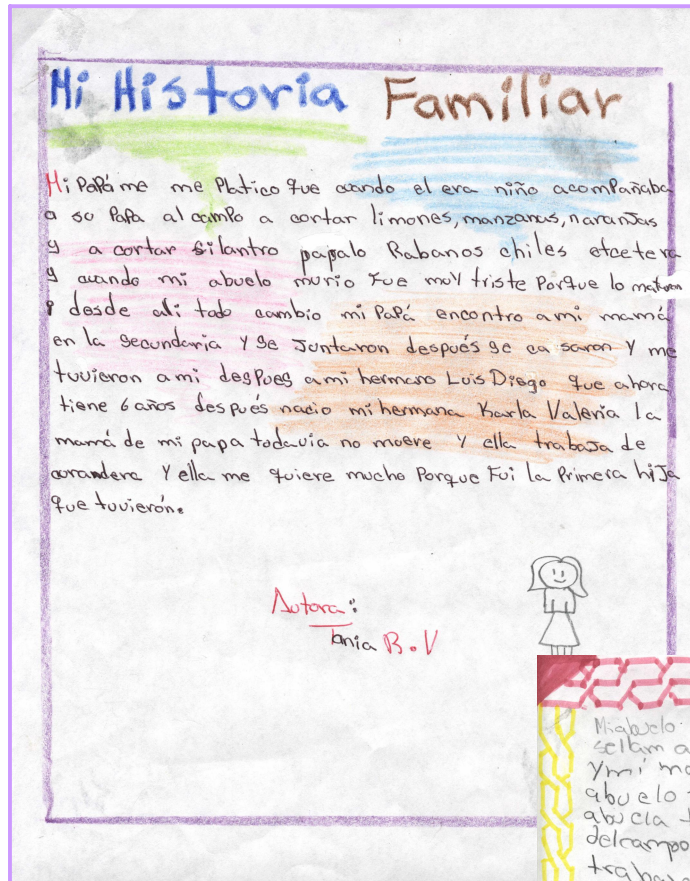 Mi Historia Familiar
Mi PaPá me me Platico que cuando el era niño acompañaba
a su PaPa al campo a cortar limones, manzanas, naranJas
y a cortar silantro papalo Rabanos chiles etcetera
y cuando mi abuelo murio Fue muy triste Porque lo mataron
y desde ali todo cambio mi PaPá encontro a mi mamá
en la secundaria Y se Juntaron después se ca saron Y me
tuvieron a mi despues a mi hermano Luis Diego que ahora
tiene 6 años después nacio mi hermana Karla Valeria la
mamá de mi papa todavia no muere Y ella trabaJa de
curandera Y ella me quiere mucho Porque Fui la Primera hiJa
que tuvierón.
Autora:
tania B.V
Mi abuelo
sellam a
Y mi ma
abuelo
abuela
del campo
trabaj